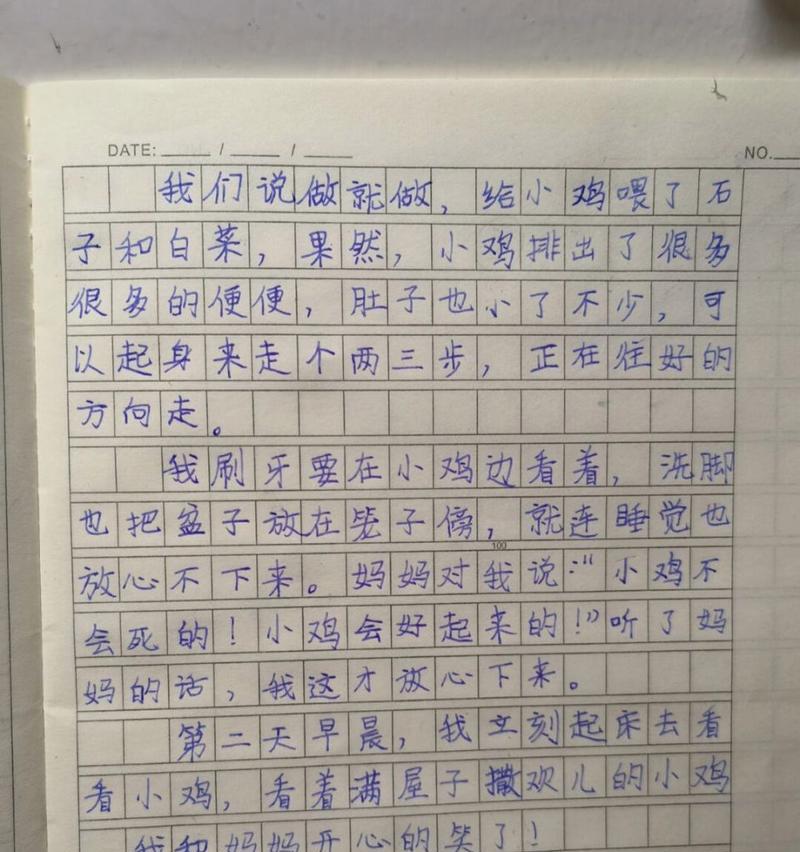 DATE: / / NO.
我们说做就做，给小鸡喂了石
子和白菜，果然，小鸡排出了很多
很多的便便，肚子也小了不少，可
以起身来走个两三步，正在往好的
方向走。
我刷牙要在小鸡边看着，洗脚
也把盆子放在笼子傍，就连睡觉也
100
放心不下来。妈妈对我说：“小鸡不
会死的！小鸡会好起来的！”听了妈
妈的话，我这才放心下来。
第二天早晨，我立刻起床去看
看小鸡，看着满屋子撒欢儿的小鸡
我和妈妈开心的笑了！